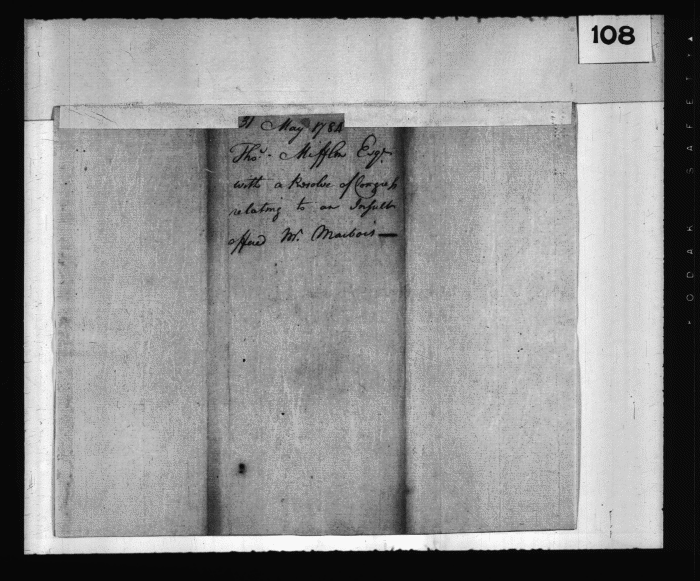 108
31 May 1784
Thos. Mifflin Esqr.
with a Resolve of Congress
relating to an Insult
offered Mr. Marbois —
KODAK SAFETY